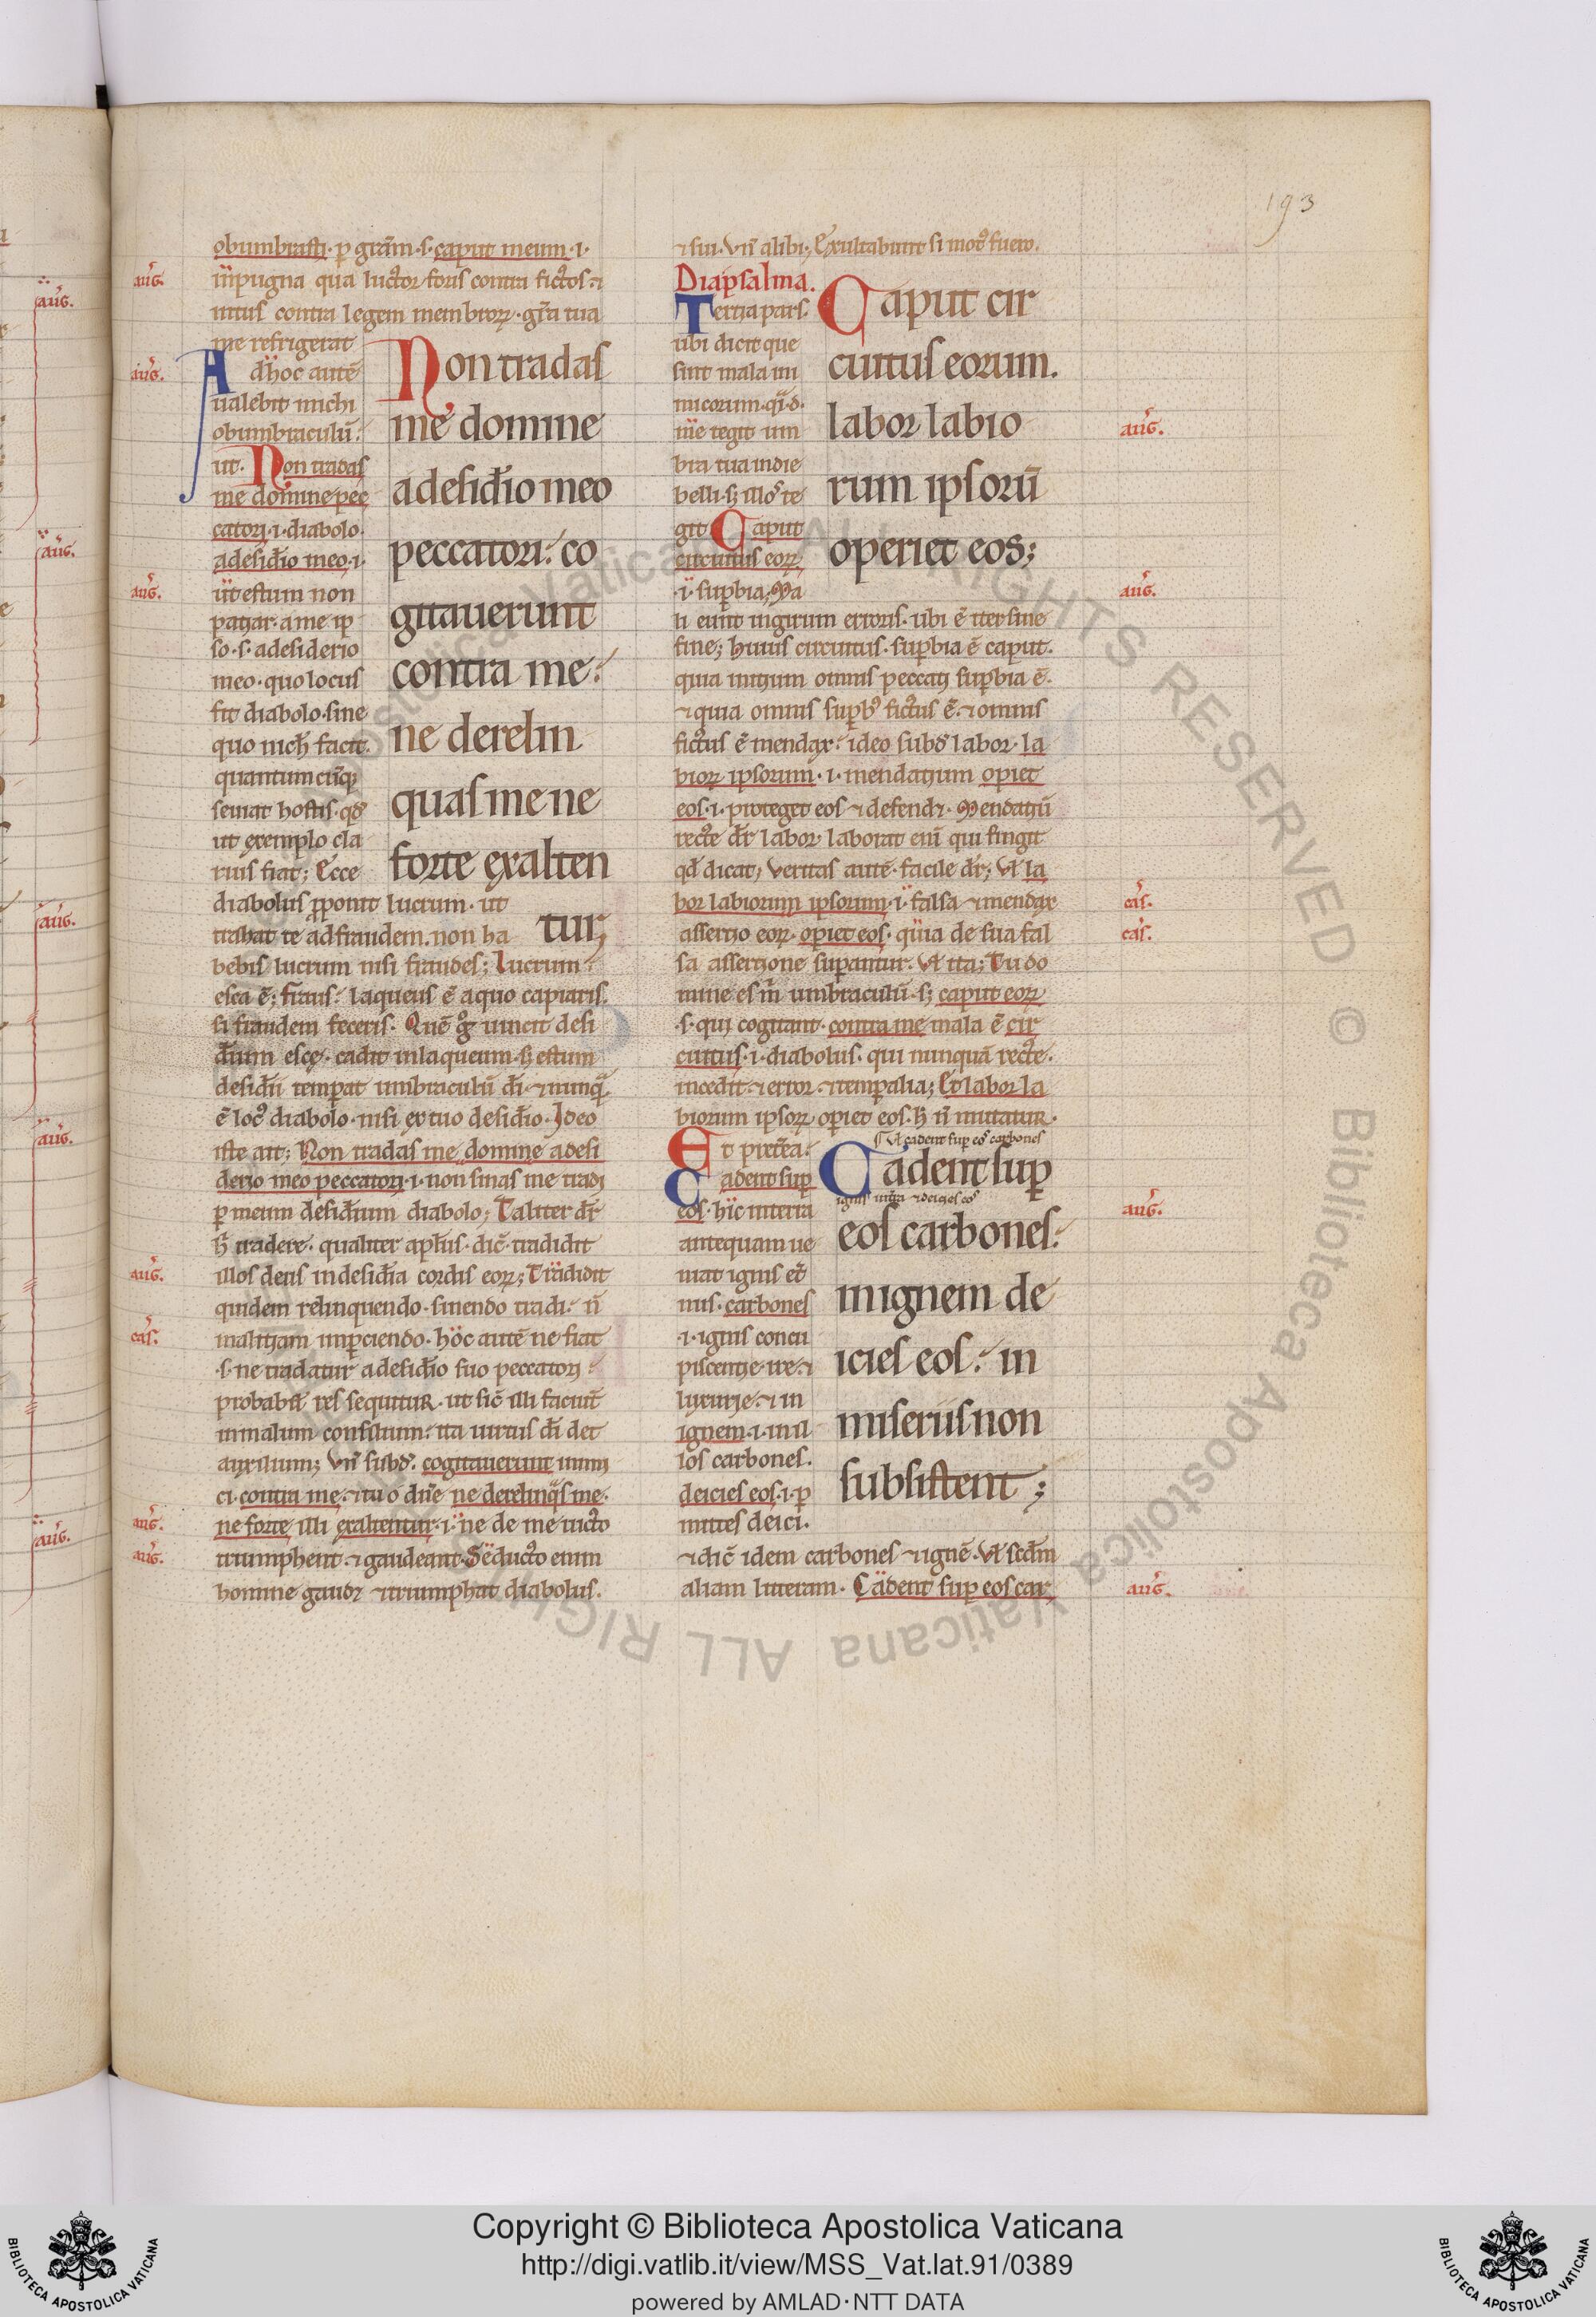 193
obumbrasti· p̱ gr̄am·s·caput meum·i·
aug̃.
īpugna qua luctor foris contra fictos·⁊
intus contra legem membroꝝ·gr̄a tua
me refrigerat
aug̃.
Ad hoc autē
ualebit michi
obumbraculū:
ut· Non tradas
me domine pec
catori·i·diabolo·
a desid̄io meo·i·
aug̃.
ut estum non
patiar·a me ip
so·s·a desiderio
meo·quo locus
fit diabolo·sine
quo nich̄ facit·
quantumcūq̨
seuiat hostis·qd̄
ut exemplo cla
rius fiat; Ecce
diabolus ꝓponit lucrum·ut
trahat te ad fraudem.non ha
bebis lucrum nisi fraudes; Lucrum:
esca ē; fraus: laqueus ē a quo capiaris·
si fraudem feceris· Quē g̊ uincit desi
d̄ium esce· cadit in laqueum·h̄ estum
desid̄ii temp̱at umbraculū d̄i·⁊ nunq̄
ē loc᷒ diabolo·nisi ex tuo desid̄io·Ideo
iste ait; Non tradas me domine a desi
derio meo peccatori·i·non sinas me tradi
p̱ meum desid̄ium diabolo; Taliter dr̄
h̄ tradere· qualiter apl̄us·dic̄·tradidit
aug̃.
illos deus in desid̄ia cordis eoꝝ; Tradidit
quidem relinquendo·sinendo tradi: n̄
cas̃.
malitiam imp̱ciendo·hoc autē ne fiat
·s·ne tradatur a desid̄io suo peccatori:
probabit res sequitur·ut sic̄ illi faciūt
in malum consilium: ita uirtus d̄i det
auxilium; Vn̄ subd̄· cogitauerunt inimi
ci·contra me·⁊ tu o dn̄e ne derelinq̄s me·
aug̃.
ne forte illi exaltentur·i·ne de me uicto
aug̃.
triumphent·⁊ gaudeant·Seducto enim
homine gaudꝫ ⁊ triumphat diabolus·
Non tradas
me domine
a desid̄io meo
peccatori: co
gitauerunt
contra me:
ne derelin
quas me ne
forte exalten
tur;
⁊ sui·Vn̄ alibi; Exultabunt si mot᷒ fuero.
Diapsalma.
Tertia pars·
ubi dicit que
sint mala ini
micorum·q̄·d·
me tegit um
bra tua in die
belli·sꝫ illos te
git Caput
circuitus eoꝝ
·i·sup̱bia; Ma
li eunt in girum erroris·ubi ē iter sine
fine; huius circuitus·sup̱bia ē caput·
quia initium omnis peccati sup̱bia ē·
⁊ quia omnis sup̱b᷒ fictus ē·⁊ omnis
fictus ē mendax: ideo subd̄ labor·la
bioꝝ ipsorum·i·mendatium op̱iet
eos·i·proteget eos ⁊ defendꝫ·Mendatiū
recte dr̄ labor· laborat enī qui fingit
qd̄ dicat; Veritas autē·facile dr̄; Vl̄ la
bor labiorum ipsorum·i·falsa ⁊ mendax
assertio eoꝝ·op̱iet eos·quia de sua fal
sa assertione sup̱antur·Vl̄ ita; Tu do
mine es m̄ umbraculū·sꝫ caput eoꝝ
·s·qui cogitant·contra me mala ē cir
cuitus·i·diabolus·qui nunquā recte·
incedit·⁊ error·⁊ temp̱alia; Et labor la
biorum ipsoꝝ op̱iet eos·h̄ n̄ mutatur·
Et pret̄ea:
Cadent sup̱
eos·hic interīa
antequam ue
niat ignis et̄
nus·carbones
·i·ignis concu
piscentie·ire·⁊
luxurie·⁊ in
ignem·i·in il
los carbones·
deicies eos·i·p̱
mittes deici·
⁊ dic̄ idem carbones ⁊ ignē·Vl̄ scd̄m
aliam litteram· Cadent sup̱ eos car
Caput cir
cuitus eorum.
labor labio
rum ipsorū
operiet eos;
Vl̄ cadent sup̱ eos carbones
Cadent sup̱
eos carbones:
in ignem de
icies eos: in
miseriis non
subsistent;
aug̃.
aug̃.
cas̃.
cas̃.
aug̃.
aug̃.
aug̃.
aug̃.
aug̃.
aug̃.
aug̃.
© Biblioteca Apostolica Vaticana ALL RIGHTS RESERVED
Copyright © Biblioteca Apostolica Vaticana
http://digi.vatlib.it/view/MSS_Vat.lat.91/0389
powered by AMLAD·NTT DATA
BIBLIOTECA APOSTOLICA VATICANA
BIBLIOTECA APOSTOLICA VATICANA